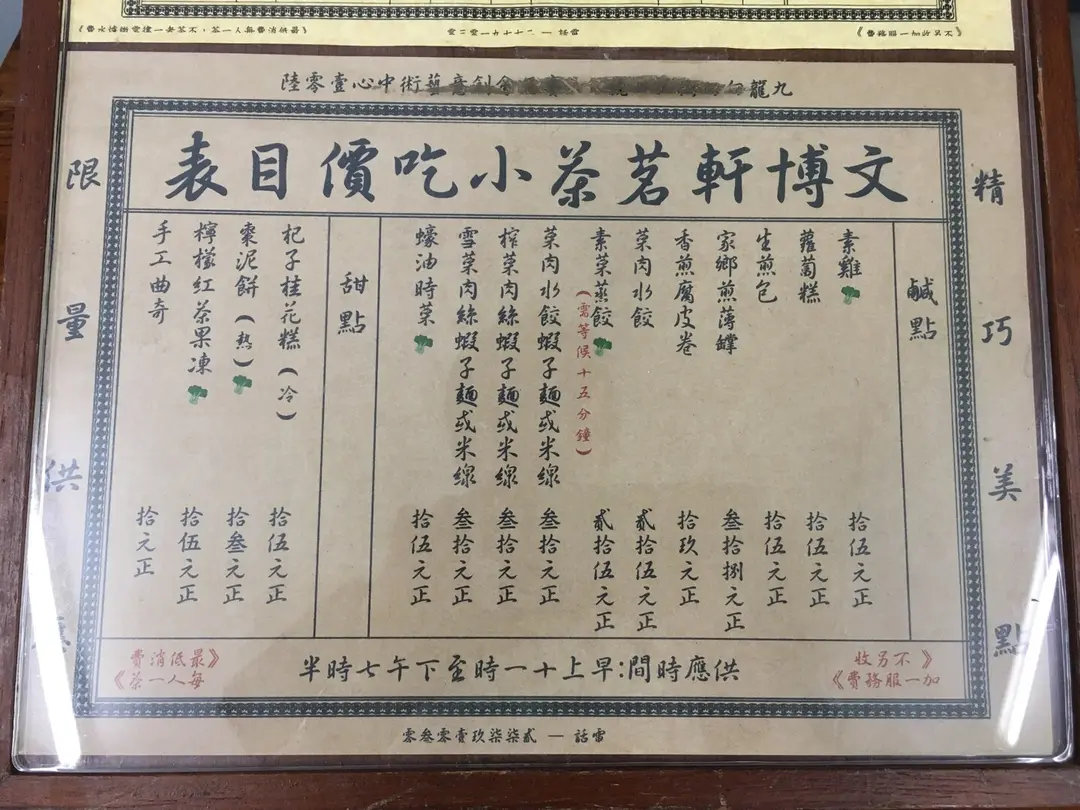 《最低消費每人一茶，不茶者一樓電術博水費》
電話 — 二七七九一零三零
《不另收加一服務費》
九龍
創意藝術中心壹零陸
精巧美點
限量供
文博軒茗茶小吃價目表
鹹點
素雞 拾伍元正
蘿蔔糕 拾伍元正
生煎包 拾伍元正
家鄉煎薄罉 叁拾捌元正
香煎腐皮卷 拾玖元正
菜肉水餃 貳拾伍元正
素菜蒸餃 貳拾伍元正
(需等候十五分鐘)
菜肉水餃蝦子麵或米線 叁拾元正
榨菜肉絲蝦子麵或米線 叁拾元正
雪菜肉絲蝦子麵或米線 叁拾元正
蠔油時菜 拾伍元正
甜點
杞子桂花糕(冷) 拾伍元正
棗泥餅(熱) 拾叁元正
檸檬紅茶果凍 拾伍元正
手工曲奇 拾元正
《不另收
加一服務費》
供應時間:早上十一時至下午七時半
《最低消費
每人一茶》
電話 — 貳柒柒玖壹零叁零